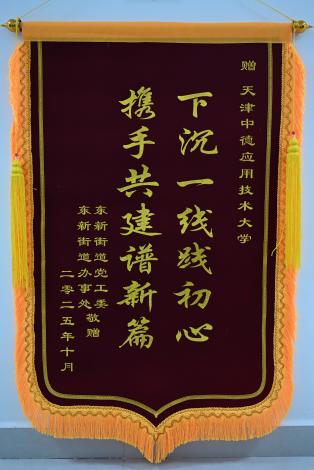 赠 天津中德应用技术大学
下沉一线践初心
携手共建谱新篇
东新街道党工委
东新街道办事处
敬赠
二零二五年十月